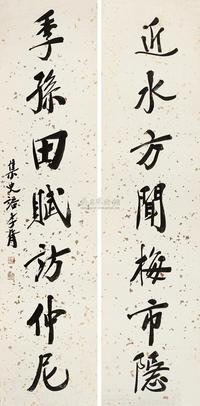 近水方聞梅市隱
季孫田賦訪仲尼
集史語